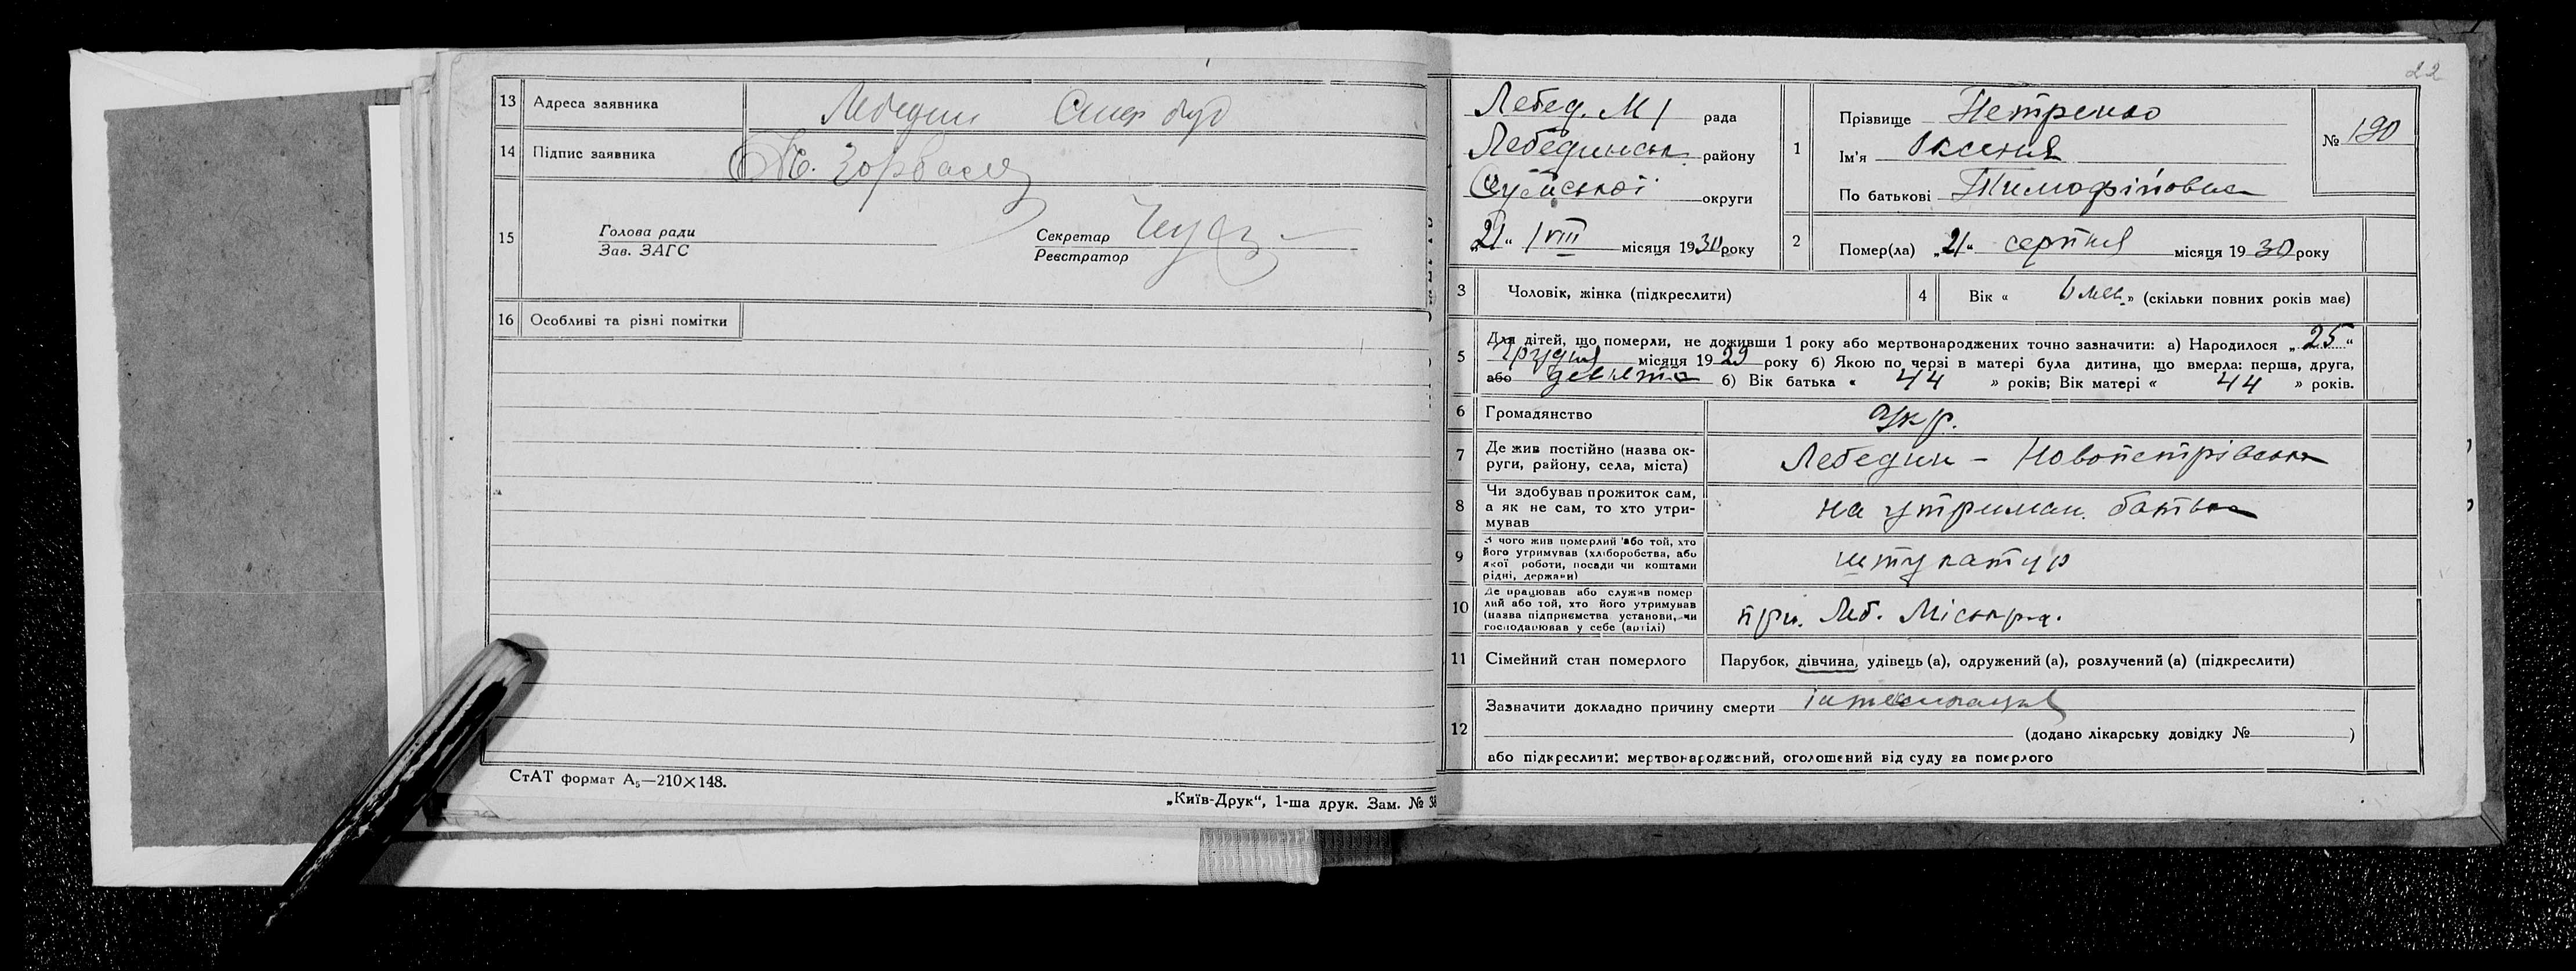 13 Адреса заявника Лебедин
14 Підпис заявника
15 Голова ради
Зав. ЗАГС
Секретар
Реєстратор
16 Особливі та різні помітки
СтАТ формат А₅—210×148.
„Київ-Друк“, 1-ша друк. Зам. № 38
22
Лебед. М/ рада
Лебединськ. району
Сумської округи
„21“ VIII місяця 1930 року
1 Прізвище Петренко
Ім'я Оксенія
По батькові Тимофіїовна
№ 190
2 Помер(ла) „21“ серпня місяця 1930 року
3 Чоловік, жінка (підкреслити)
4 Вік « міс. » (скільки повних років має)
5 Для дітей, що померли, не доживши 1 року або мертвонароджених точно зазначити: а) Народилося „25“
Грудня місяця 1929 року б) Якою по черзі в матері була дитина, що вмерла: перша, друга,
або девята б) Вік батька « 44 » років; Вік матері « 44 » років.
6 Громадянство укр.
7 Де жив постійно (назва ок-
руги, району, села, міста) Лебедин – Новопетрівська
8 Чи здобував прожиток сам,
а як не сам, то хто утри-
мував на утриман. батька
9 З чого жив померлий або той, хто
його утримував (хліборобства, або
якої роботи, посади чи коштами
рідні, держави) штукатур
10 Де працював або служив помер
лий або той, хто його утримував
(назва підприємства установи, чи
господарював у себе (артілі) при. Леб. Міськра.
11 Сімейний стан померлого Парубок, дівчина, удівець (а), одружений (а), розлучений (а) (підкреслити)
12 Зазначити докладно причину смерти
(додано лікарську довідку № )
або підкреслити: мертвонароджений, оголошений від суду за померлого